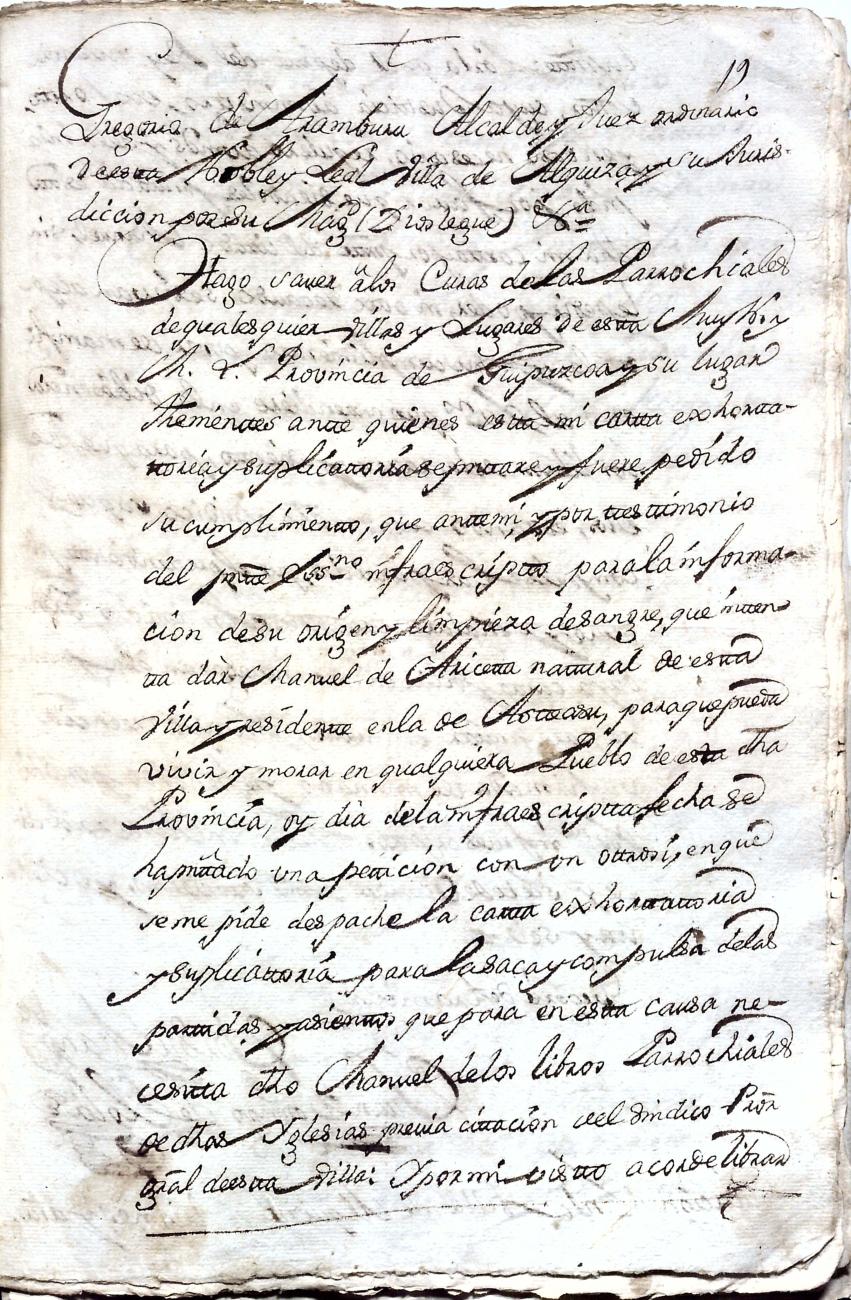 19
Gregorio de Aramburu Alcalde y Juez ordinario
de estta Noble y Leal Villa de Alquiza y su Juris-
diccion por su Magd (Dios le gue) &a
Hago saver â los Curas de las Parrochiales
de quales quier Villas y Lugares de estta Muy N. y
M. L. Provincia de Guipuzcoa y su lugar
thenienttes antte quienes estta mi cartta exhortta-
ttoria y suplicattoria se pnttare y fuere pedido
su cumplimientto, que antte mi, y por ttesttimonio
del pntte Essno infraescriptto para la informa-
cion de su origen y limpieza de sangre, que intten-
tta dar Manuel de Aricetta nattural de estta
Villa y residentte en la de Astteasu, para que pueda
vivir y morar en qualquiera Pueblo de esta dha
Provincia, oy dia de la infraescriptta fecha se
ha pnttado una petticion con un ottrosi, en que
se me pide despache la cartta exhorttattoria
y suplicattoria para la saca y compulsa de las
parttidas y asienttos que para en estta causa ne-
cesitta dho Manuel de los libros Parrochiales
de dhas Yglesias previa cittacion del Sindico Pror
gral de estta Villa: Y por mi vistto acorde librar